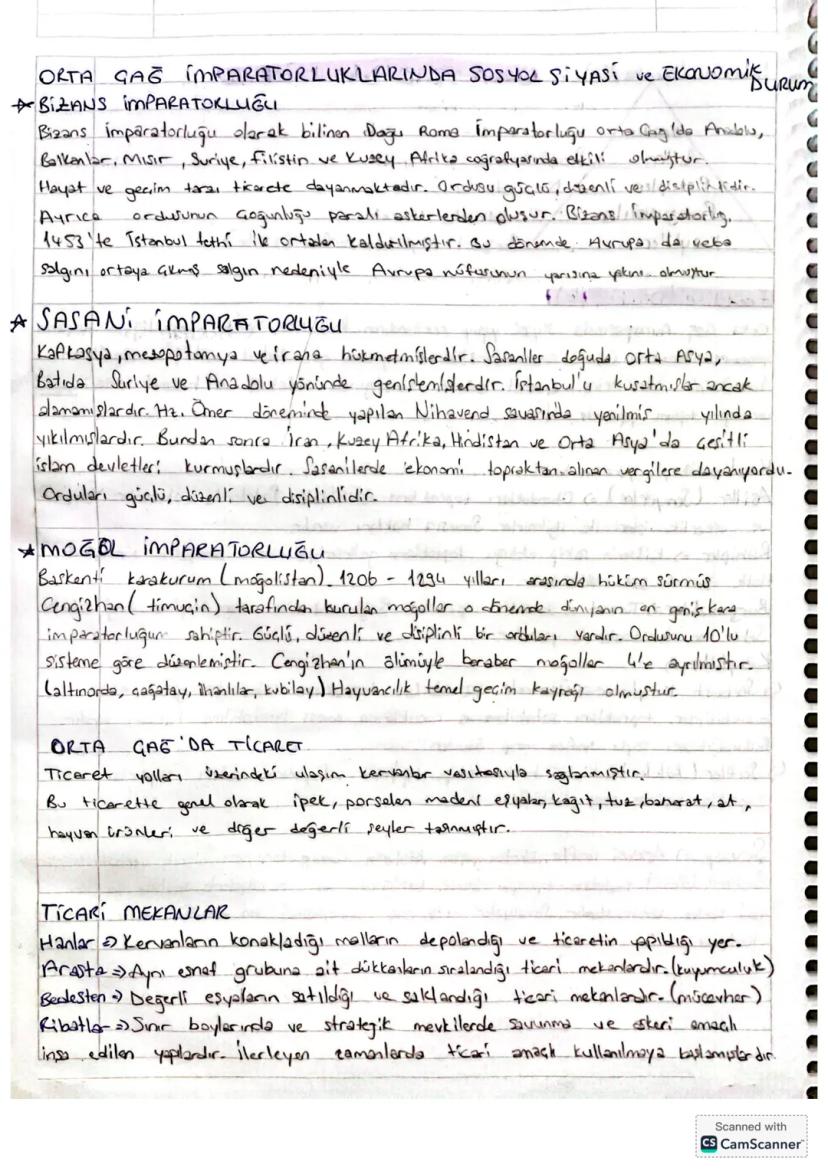 ORTA ÇAĞ İMPARATORLUKLARINDA SOSYOL SİYASİ ve EKONOMİK DURUM
BİZANS İMPARATORLUĞU
Bizans imparatorluğu olarak bilinen Doğu Roma İmparatorluğu orta Çağ'da Anadolu,
Balkanlar, Mısır, Suriye, Filistin ve Kuzey Afrika coğrafyasında etkili olmuştur.
Hayat ve geçim tarzı ticarete dayanmaktadır. Ordusu güçlü, düzenli ve disiplinlidir.
Ayrıca ordusunun çoğunluğu paralı askerlerden oluşur. Bizans İmparatorlığı,
1453'te İstanbul fethi ile ortadan kaldırılmıştır. Bu dönemde Avrupa da veba
salgını ortaya çıkmış salgın nedeniyle Avrupa nüfusunun yarısına yakını ölmüştür
SASANİ İMPARATORLUĞU
Kafkasya, mezopotamya ve irana hükmetmişlerdir. Sasaniler doğuda Orta Asya,
Batıda Suriye ve Anadolu yönünde genişlemişlerdir. İstanbul'u kuşatmışlar ancak
alamamışlardır. Hz. Ömer döneminde yapılan Nihavend savaşında yenilmiş yılında
yıkılmışlardır. Bundan sonra İran, Kuzey Afrika, Hindistan ve Orta Asya'da çeşitli
islam devletleri kurmuşlardır. Sasanilerde ekonomi topraktan alınan vergilere dayanıyordu.
Orduları güçlü, düzenli ve disiplinlidir.
MOĞOL İMPARATORLUĞU
Başkenti karakurum (moğolistan). 1206 - 1294 yılları arasında hüküm sürmüş
Cengizhan (timuçin) tarafından kurulan moğollar o dönemde dünyanın en geniş kara
imparatorluğun sahiptir. Güçlü, düzenli ve disiplinli bir orduları vardır. Ordusunu 10'lu
sisteme göre düzenlemiştir. Cengizhan'ın ölümüyle beraber moğollar 4'e ayrılmıştır.
(altınorda, çağatay, ilhanlılar, kubilay) Hayvancılık temel geçim kaynağı olmuştur.
ORTA ÇAĞ'DA TİCARET
Ticaret yolları üzerindeki ulaşım kervanlar vasıtasıyla sağlanmıştır.
Bu ticarette genel olarak ipek, porselen madeni eşyalar, kağıt, tuz, baharat, at,
hayvan ürünleri ve diğer değerli şeyler taşınmıştır.
TİCARİ MEKANLAR
Hanlar => Kervanların konakladığı malların depolandığı ve ticaretin yapıldığı yer.
Arasta => Aynı esnaf grubuna ait dükkanların sıralandığı ticari mekanlardır. (kuyumculuk)
Bedesten => Değerli eşyaların satıldığı ve saklandığı ticari mekanlardır. (mücevher)
Ribatlar => Sınır boylarında ve stratejik mevkilerde savunma ve askeri amaçlı
inşa edilen yapılardır. İlerleyen zamanlarda ticari amaçlı kullanılmaya başlamışlardır.
Scanned with
CS CamScanner